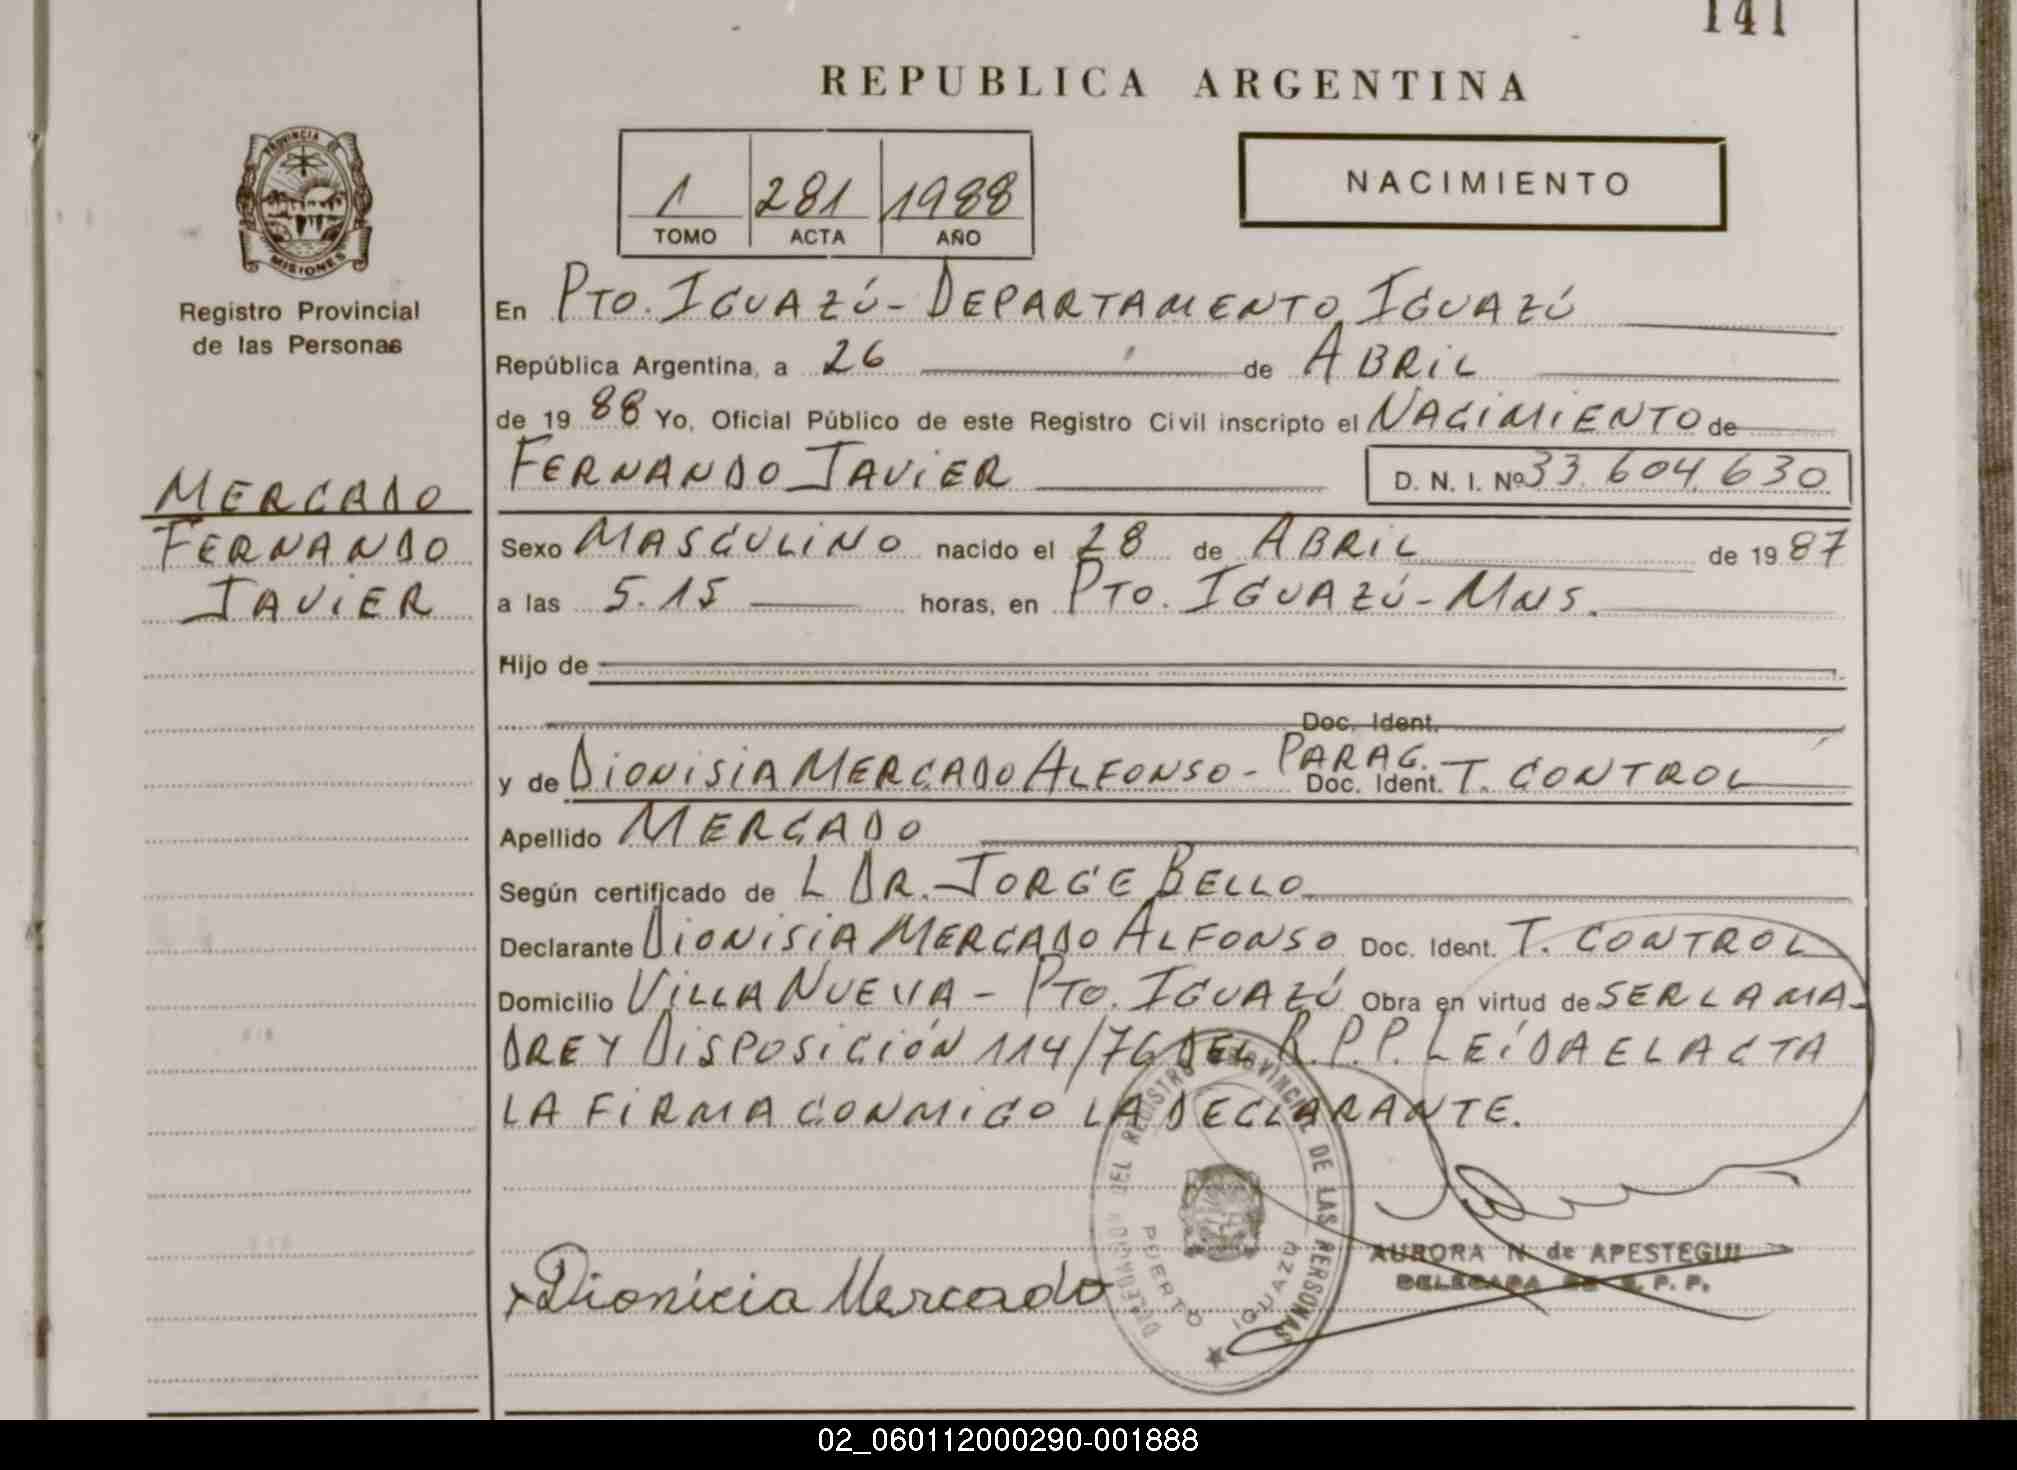 141
REPUBLICA ARGENTINA
PROVINCIA DE
MISIONES
Registro Provincial
de las Personas
1 281 1988
TOMO ACTA AÑO
NACIMIENTO
En PTO. IGUAZÚ - DEPARTAMENTO IGUAZÚ
República Argentina, a 26 de ABRIL
de 1988 Yo, Oficial Público de este Registro Civil inscripto el NACIMIENTO de
FERNANDO JAVIER D. N. I. Nº 33.604.630
MERCADO
FERNANDO
JAVIER
Sexo MASCULINO nacido el 28 de ABRIL de 1987
a las 5.15 horas, en PTO. IGUAZÚ - MNS.
Hijo de
Doc. Ident.
y de DIONISIA MERCADO ALFONSO - PARAG. Doc. Ident. T. CONTROL
Apellido MERCADO
Según certificado de L DR. JORGE BELLO
Declarante DIONISIA MERCADO ALFONSO Doc. Ident. T. CONTROL
Domicilio VILLA NUEVA - PTO. IGUAZÚ Obra en virtud de SER LA MA-
DRE Y DISPOSICIÓN 114/76 DEL R.P.P. LEÍDA EL ACTA
LA FIRMA CONMIGO LA DECLARANTE.
DELEGACION DEL REGISTRO PROVINCIAL DE LAS PERSONAS
PUERTO IGUAZU
x Dionicia Mercado
AURORA N. de APESTEGUI
DELEGADA DE R. P. P.
02_060112000290-001888